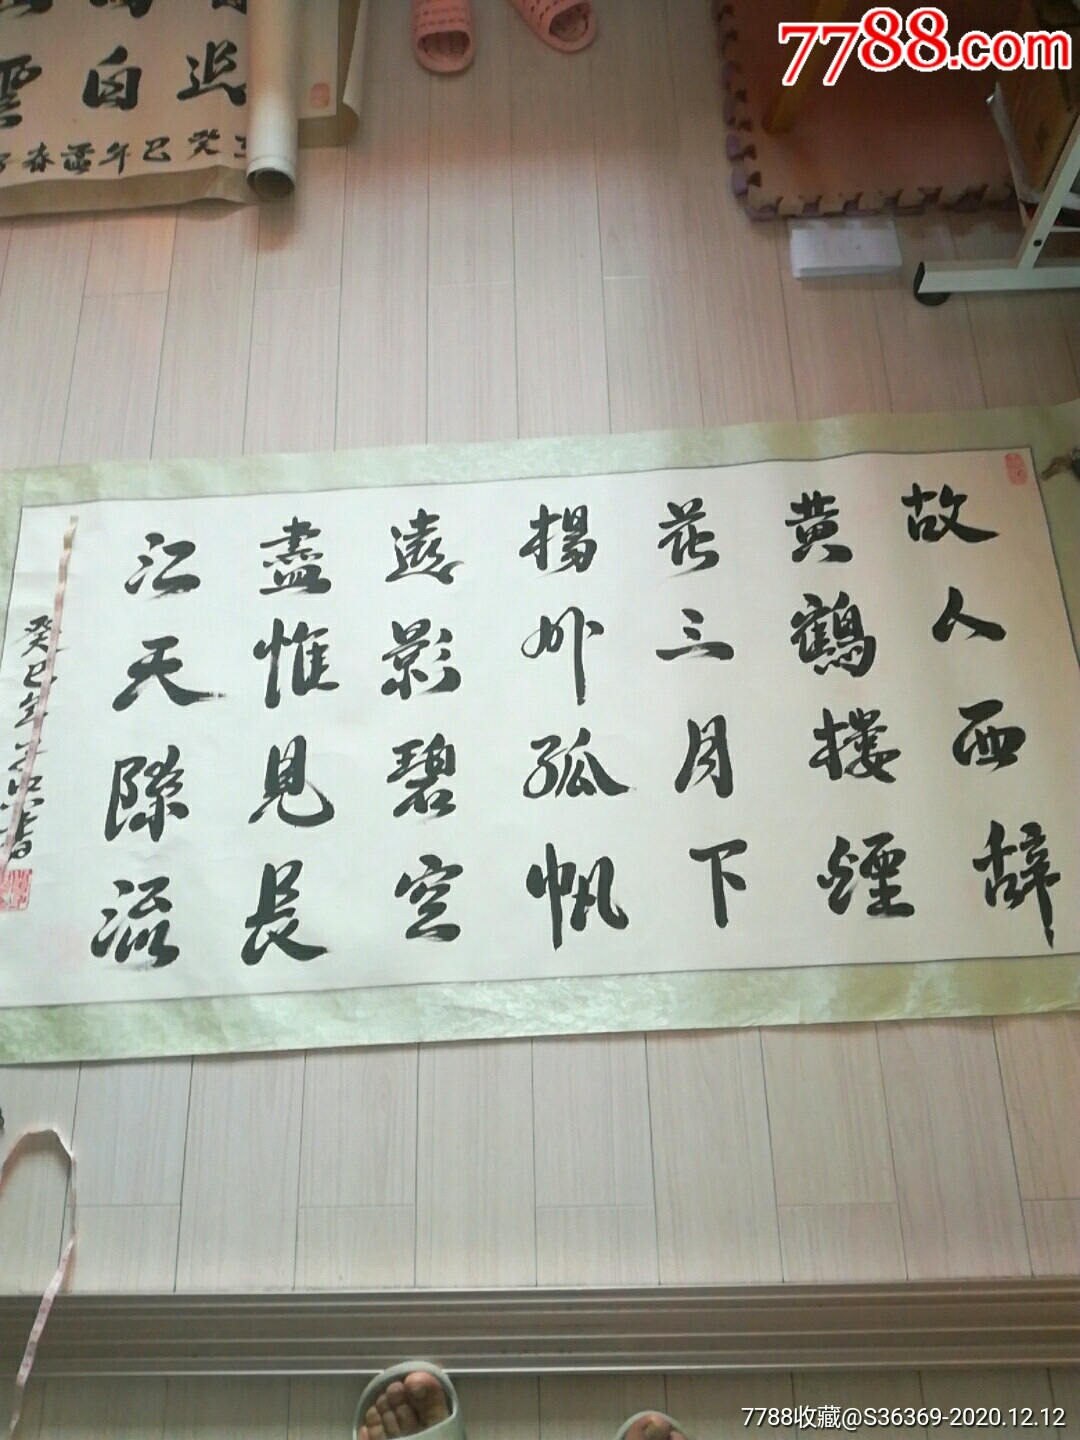 7788.com
故人西辞
黄鶴楼煙
花三月下
揚州孤帆
遠影碧空
盡惟見長
江天際流
癸巳年
雲白边
癸巳年
7788收藏@S36369-2020.12.12